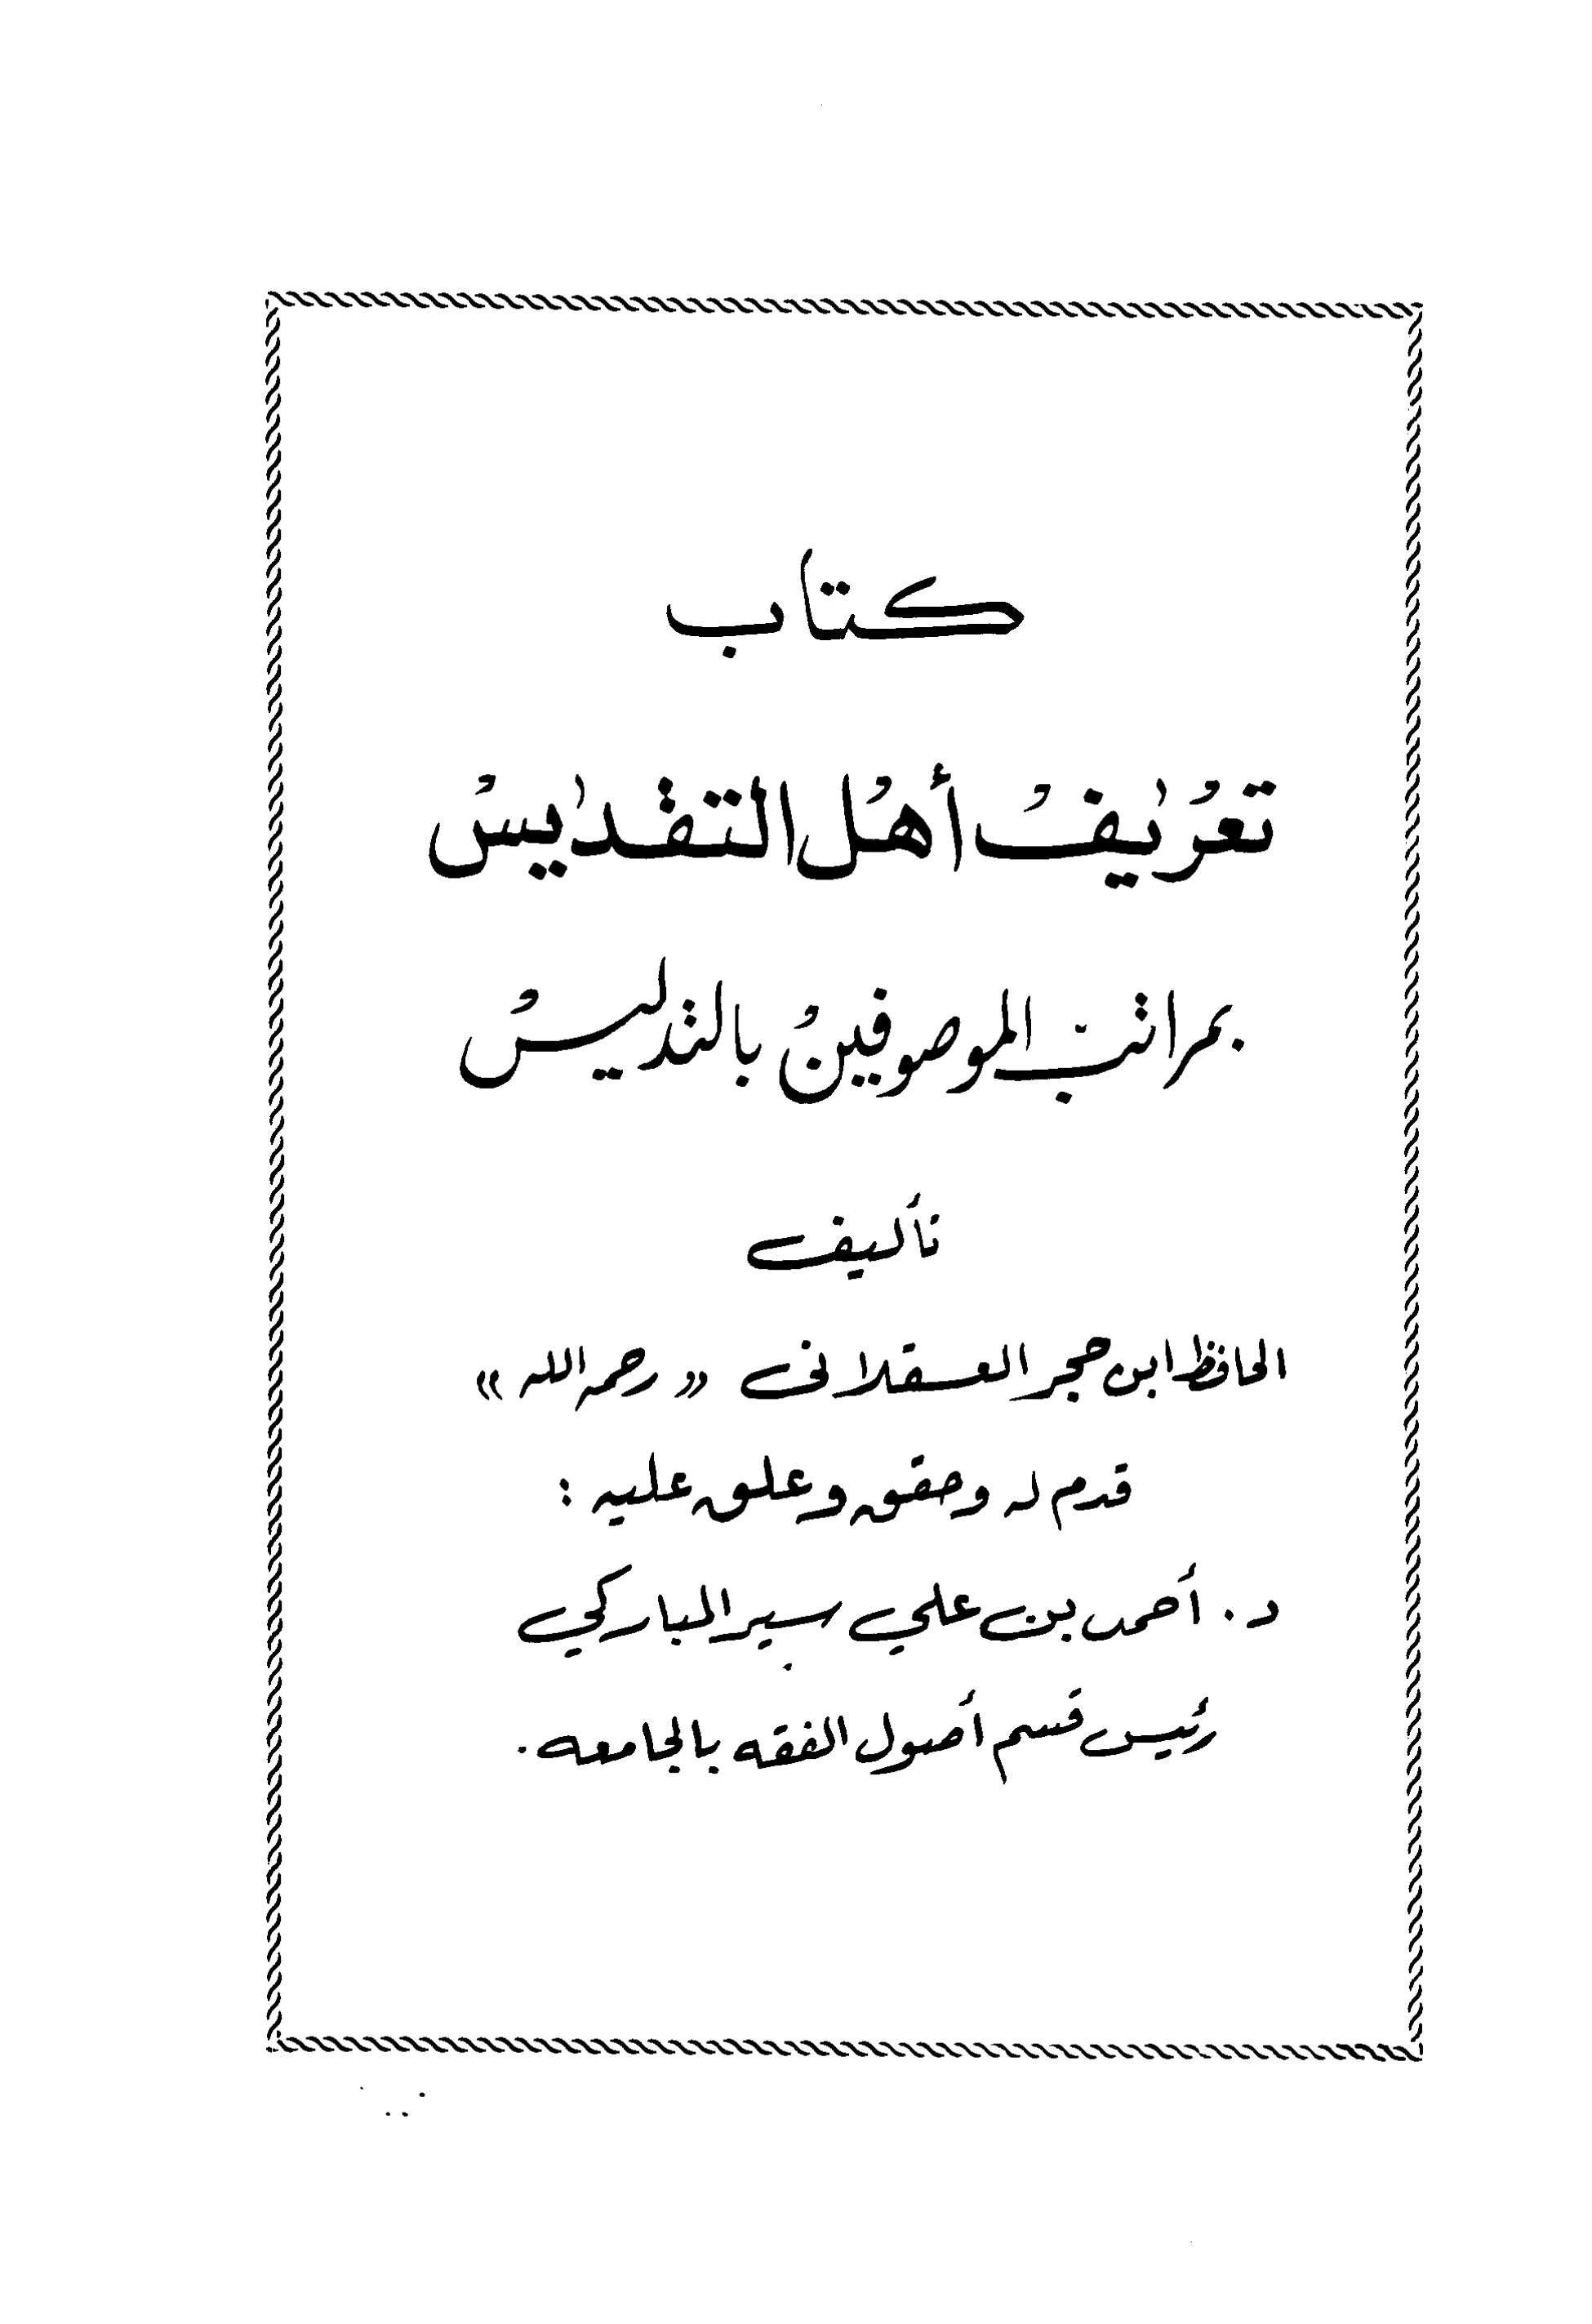 كتاب
تعريف أهل التقديس
بمراتب الموصوفين بالتدليس
تأليف
الحافظ ابن حجر العسقلاني « رحمه الله »
قدم له وحققه وعلق عليه :
د. أحمد بن علي سير المباركي
رئيس قسم أصول الفقه بالجامعه.